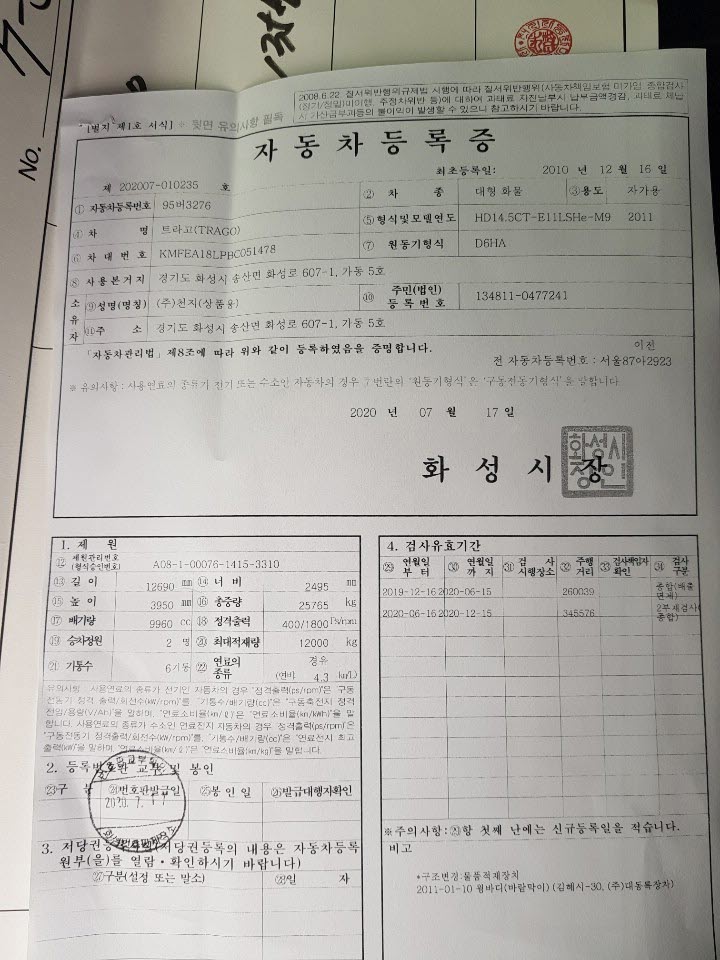 No.
2008.6.22. 질서위반행위규제법 시행에 따라 질서위반행위(자동차책임보험 미가입 종합검사
(정기/정밀)미이행, 주정차위반 등)에 대하여 과태료 자진납부시 납부금액경감, 과태료 체납
시 가산금부과등의 불이익이 발생할 수 있으니 참고하시기 바랍니다.
[별지 제1호 서식] ※ 뒷면 유의사항 필독
자동차등록증
최초등록일: 2010 년 12 월 16 일
제 202007-010235 호
② 차 종 대형 화물 ③용도 자가용
① 자동차등록번호 95버3276
④ 차 명 트라고(TRAGO)
⑤ 형식및모델연도 HD14.5CT-E11LSHe-M9 2011
⑥ 차 대 번 호 KMFEA18LPBC051478
⑦ 원동기형식 D6HA
⑧ 사용본거지 경기도 화성시 송산면 화성로 607-1, 가동 5호
소유자
⑨성명(명칭) (주)천지(상품용)
⑩ 주민(법인)등록번호 134811-0477241
⑪주 소 경기도 화성시 송산면 화성로 607-1, 가동 5호
「자동차관리법」제8조에 따라 위와 같이 등록하였음을 증명합니다.
이전
전 자동차등록번호 : 서울87아2923
※ 유의사항 : 사용연료의 종류가 전기 또는 수소인 자동차의 경우 7번란의 '원동기형식'은 '구동전동기형식'을 말합니다.
2020 년 07 월 17 일
화 성 시 장
화성시장인
1. 제 원
⑫ 제원관리번호(형식승인번호) A08-1-00076-1415-3310
⑬ 길 이 12690 mm ⑭ 너 비 2495 mm
⑮ 높 이 3950 mm ⑯ 총중량 25765 kg
⑰ 배기량 9960 cc ⑱ 정격출력 400/1800 Ps/rpm
⑲ 승차정원 2 명 ⑳ 최대적재량 12000 kg
21 기통수 6기통 22 연료의 종류 경유 (연비 4.3 km/L)
유의사항 : 사용연료의 종류가 전기인 자동차의 경우 "정격출력(ps/rpm)"은 "구동
전동기 정격 출력/회전수(kW/rpm)"를, "기통수/배기량(cc)"은 "구동축전지 정격
전압/용량(V/Ah)"을 말하며, "연료소비율(km/ℓ)"은 "연료소비율(km/kWh)"을 말
합니다. 사용연료의 종류가 수소인 연료전지 자동차의 경우 "정격출력(ps/rpm)"은
"구동전동기 정격출력/회전수(kW/rpm)"를, "기통수/배기량(cc)"은 "연료전지 최고
출력(kW)"을 말하며, "연료소비율(km/ℓ)"은 "연료소비율(km/kg)"을 말합니다.
2. 등록번호판 교부 및 봉인
23구 분 24번호판발급일 25봉 인 일 26발급대행자확인
2020. 7. 17
3. 저당권등록 저당권등록의 내용은 자동차등록
원부(을)를 열람・확인하시기 바랍니다)
27구분(설정 또는 말소) 28일 자
4. 검사유효기간
29 연월일부터 30 연월일까지 31 검사시행장소 32 주행거리 33 검사책임자확인 34 검사구분
2019-12-16 2020-06-15 260039 종합(배출면제)
2020-06-16 2020-12-15 345576 2부재검사(종합)
※주의사항:29항 첫째 난에는 신규등록일을 적습니다.
비고
*구조변경:물품적재장치
2011-01-10 윙바디(바람막이) (김해시-30, (주)대동특장차)